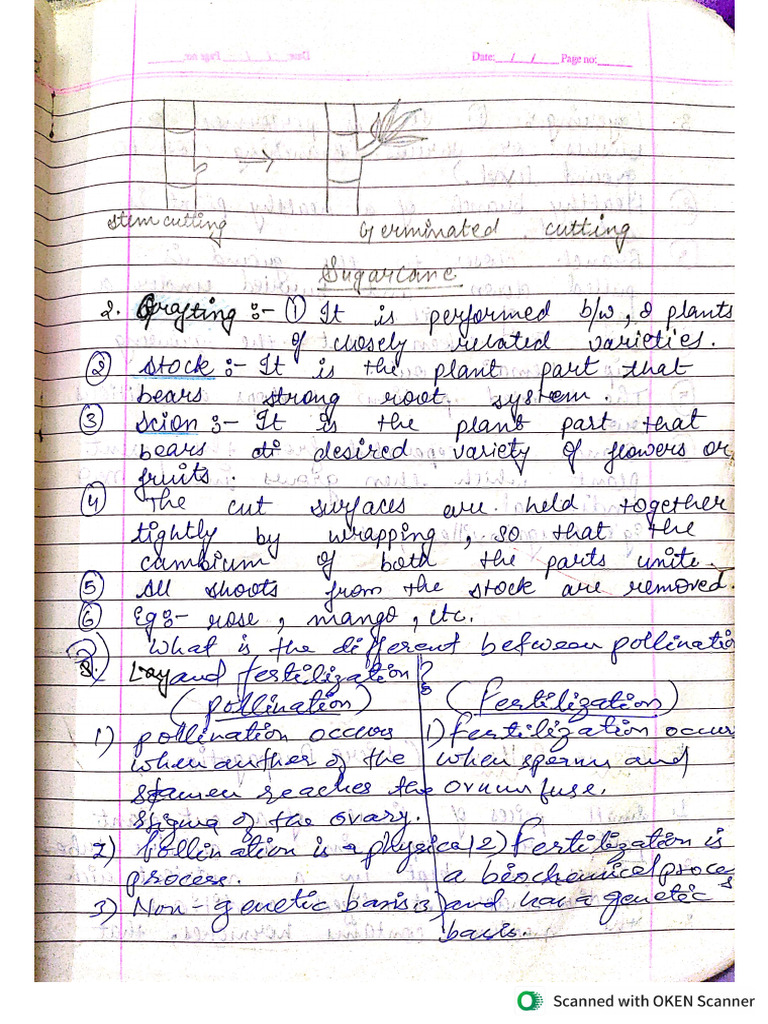 Date:__/__/____ Page no:______
stem cutting
Germinated cutting
Sugarcane
2. Grafting :- ① It is performed b/w, 2 plants
of closely related varieties.
② Stock :- It is the plant part that
bears strong root system.
③ Scion :- It is the plant part that
bears desired variety of flowers or
fruits.
④ The cut surfaces are held together
tightly by wrapping, so that the
cambium of both the parts unite.
⑤ All shoots from the stock are removed.
⑥ Eg:- rose, mango, etc.
What is the different between pollinatio
3. Lay and fertilization?
(pollination) (Fertilization)
1) pollination occurs 1) fertilization occur
when anther of the when sperm and
stamen reaches the ovum fuse.
stigma of the ovary.
2) Pollination is a physical 2) Fertilization is
process. a biochemical process
3) Non-genetic basis 3) and has a genetic
basis.
Scanned with OKEN Scanner